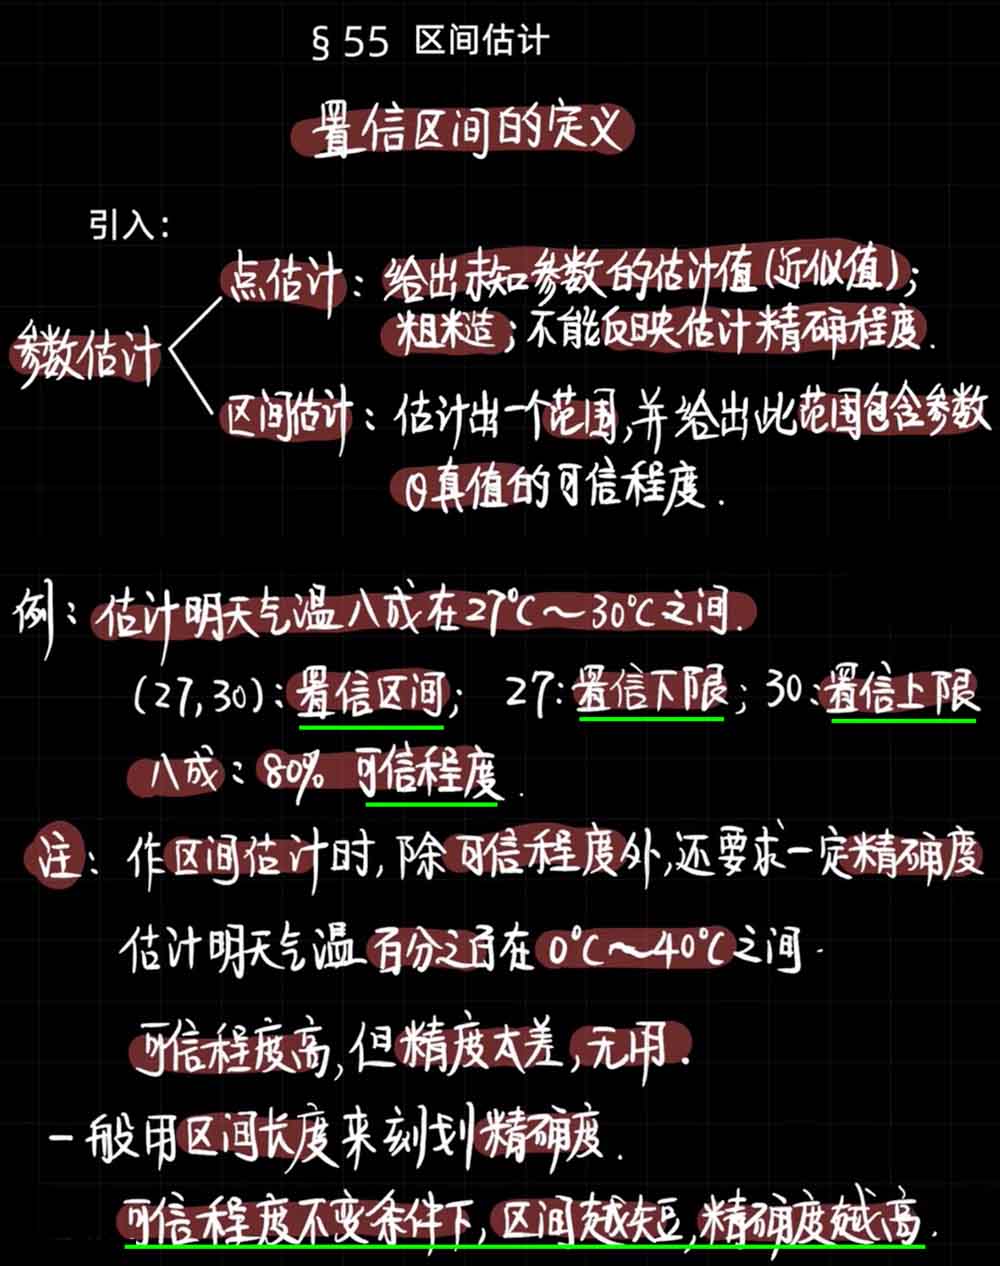 §55 区间估计
置信区间的定义
引入：
点估计：给出未知参数的估计值(近似值)；
粗糙；不能反映估计精确程度.
参数估计
区间估计：估计出一个范围,并给出此范围包含参数
θ真值的可信程度.
例：估计明天气温八成在27℃～30℃之间.
(27,30)：置信区间； 27：置信下限；30：置信上限
八成：80% 可信程度.
注：作区间估计时,除可信程度外,还要求一定精确度
估计明天气温百分之百在0℃～40℃之间.
可信程度高,但精度太差,无用.
一般用区间长度来刻划精确度.
可信程度不变条件下,区间越短,精确度越高.